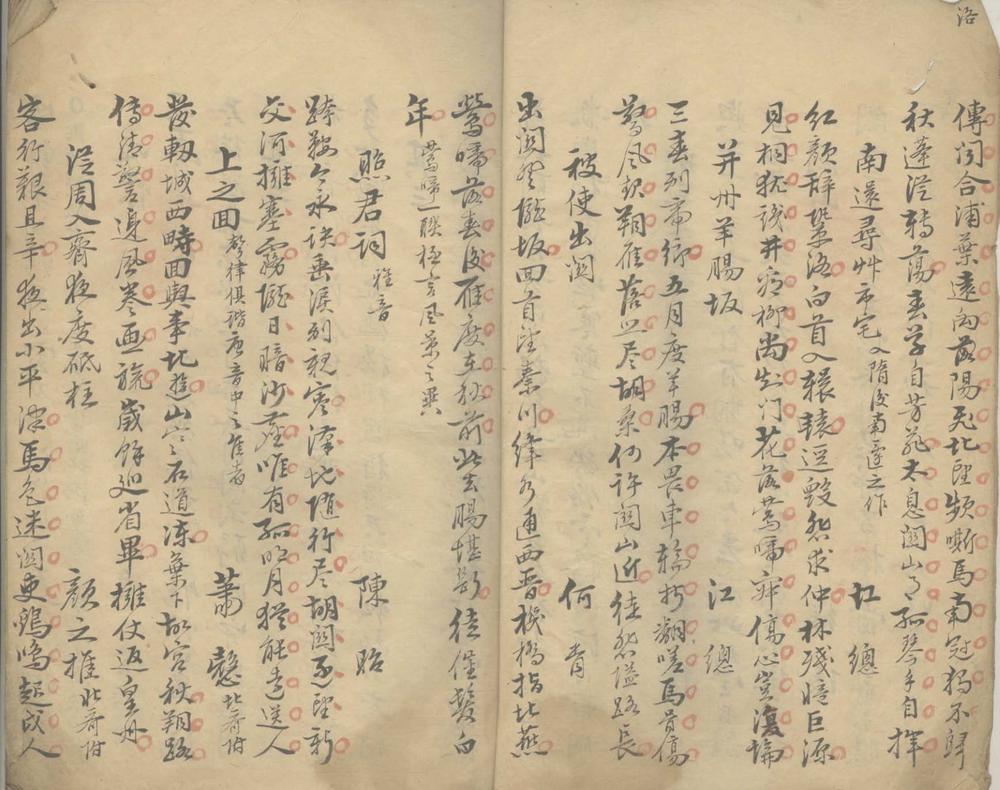 洛
傳聞合浦葉遠向洛陽飛北風頻嘶馬南冠獨不歸
秋蓬從轉蕩春草自芳菲太息關山月孤琴手自揮
南還尋草市宅 入隋後南還之作 江總
紅顏辭鞏洛白首入轘轅乘毀悲求仲林殘憶巨源
見桐猶識井看柳尚知門花落鶯啼寂傷心豈復論
并州羊腸坂 江總
三春別帝鄉五月度羊腸本畏車輪折翻嗟馬骨傷
驚風起朔雁落照盡胡桑何許關山近徒悲道路長
被使出關 何胥
出關登隴坂回首望秦川絳水通西晉機橋指北燕
鶯啼落春後雁度在秋前此去腸堪斷徒催鬢白
年 鶯啼一聯極言風景之異
昭君詞 雅音 陳昭
跨鞍今永訣垂淚別親賓漢地隨行盡胡關逐望新
交河擁塞霧隴日暗沙塵唯有孤明月猶能遠送人
上之回 聲律俱諧唐音中之佳者 蕭慤 北齊附
發軔城西畤回輿事北遊山寒石道凍葉下故宮秋朔路
傳清警邊風卷畫旒歲餘巡省畢擁仗返皇州
從周入齊夜度砥柱 顏之推 北齊附
客行艱且辛夜出小平津馬色迷關吏雞鳴起戍人